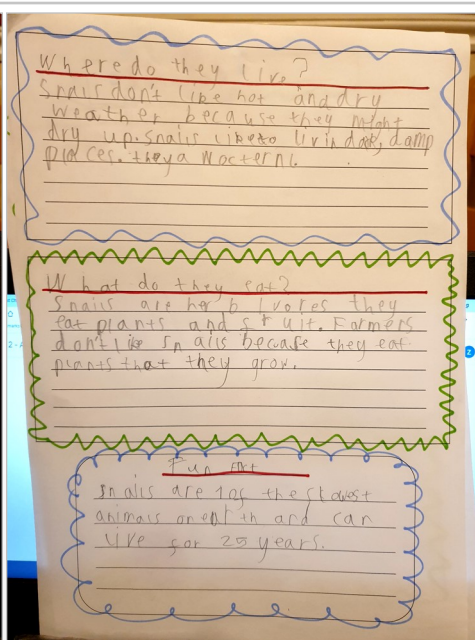 Where do they live?
Snails don't like hot and dry
weather because they might
dry up. snails like to livin dark, damp
places. they a nocternl.
What do they eat?
Snails are herbivores they
eat plants and fruit. Farmers
don't like snails because they eat
plants that they grow.
Fun fact
snails are 1 of the slowest
animals on earth and can
live for 25 years.